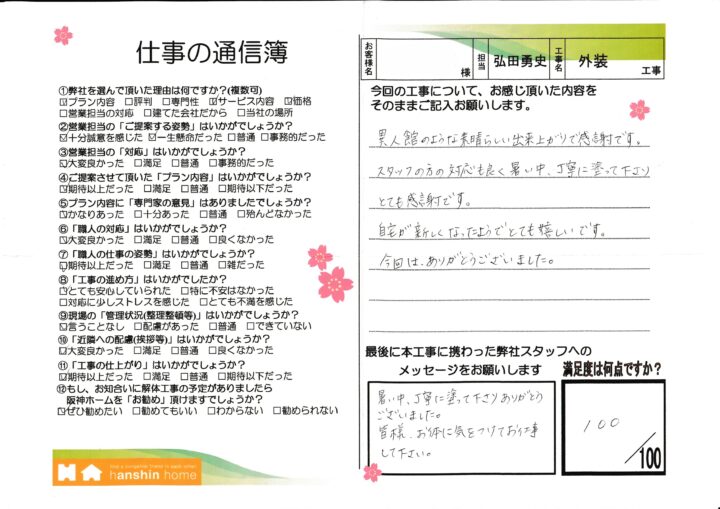 仕事の通信簿
①弊社を選んで頂いた理由は何ですか?(複数可)
☑プラン内容 □評判 □専門性 ☑サービス内容 ☑価格
□営業担当の対応 □建てた会社だから □当社の場所
②営業担当の「ご提案する姿勢」はいかがでしょうか?
☑十分誠意を感じた ☑一生懸命だった □普通 □事務的だった
③営業担当の「対応」はいかがでしょうか?
☑大変良かった □満足 □普通 □事務的だった
④ご提案させて頂いた「プラン内容」はいかがでしょうか?
☑期待以上だった □満足 □普通 □期待以下だった
⑤プラン内容に「専門家の意見」はありましたでしょうか?
☑かなりあった □十分あった □普通 □殆んどなかった
⑥「職人の対応」はいかがでしょうか?
☑大変良かった □満足 □普通 □良くなかった
⑦「職人の仕事の姿勢」はいかがでしょうか?
☑期待以上だった □満足 □普通 □雑だった
⑧「工事の進め方」はいかがでしたか?
☑とても安心していられた □特に不安はなかった
□対応に少しストレスを感じた □とても不満を感じた
⑨現場の「管理状況(整理整頓等)」はいかがでしょうか?
☑言うことなし □配慮があった □普通 □できていない
⑩「近隣への配慮(挨拶等)」はいかがでしょうか?
☑大変良かった □満足 □普通 □良くなかった
⑪「工事の仕上がり」はいかがでしょうか?
☑期待以上だった □満足 □普通 □期待以下だった
⑫もし、お知合いに解体工事の予定がありましたら
阪神ホームを「お勧め」頂けますでしょうか?
☑ぜひ勧めたい □勧めてもいい □わからない □勧められない
hanshin home
お客様名 様 担当 弘田勇史 工事名 外装 工事
今回の工事について、お感じ頂いた内容を
そのままご記入お願いします。
異人館のような素晴らしい出来上がりで感謝です。
スタッフの方の対応も良く暑い中、丁寧に塗って下さり
とても感謝です。
自宅が新しくなったようでとても嬉しいです。
今回は、ありがとうございました。
最後に本工事に携わった弊社スタッフへの
メッセージをお願いします
暑い中、丁寧に塗って下さりありがとう
ございました。
皆様、お体に気をつけてお仕事
して下さい。
満足度は何点ですか?
100
/100